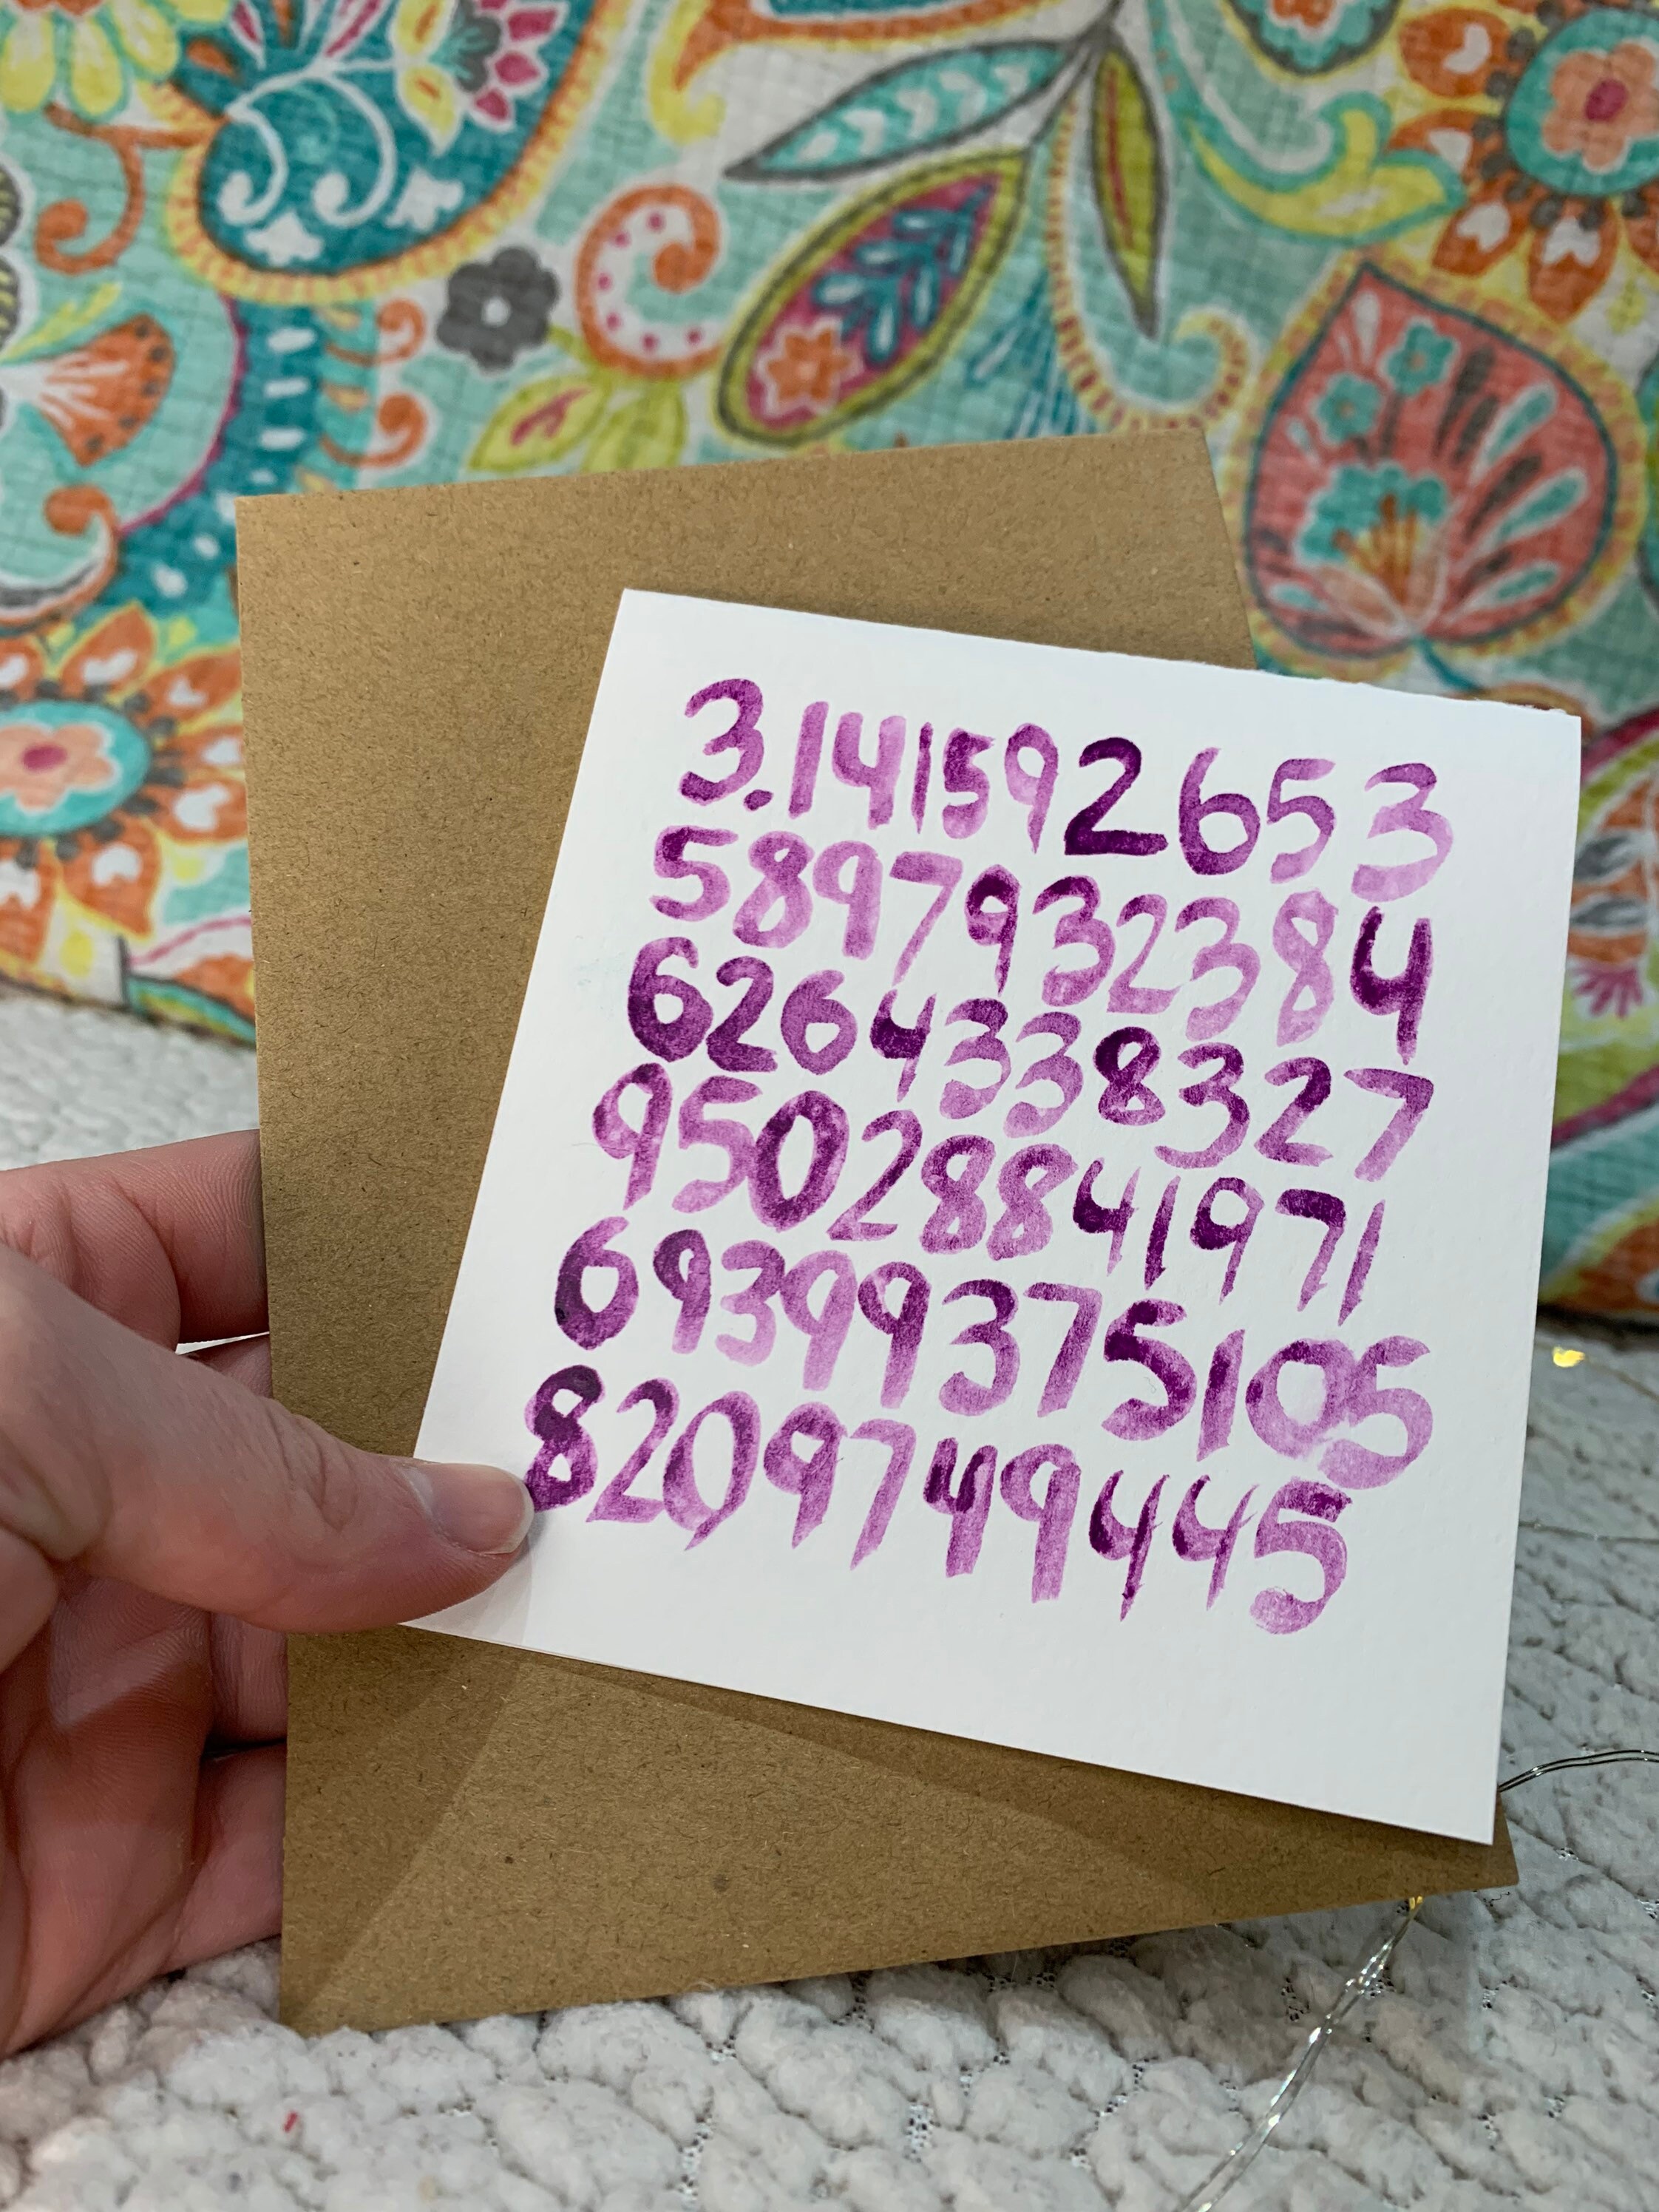 3.141592653
5897932384
6264338327
95028841971
69399375105
8209749445